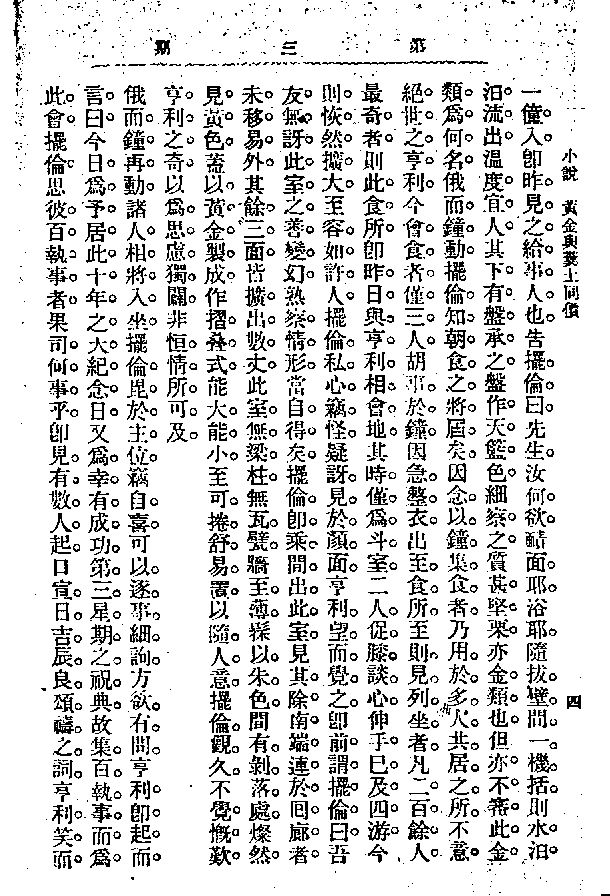 第三期
小說 黃金與糞土同價
四
一僮入卽昨見之給事人也告擺倫曰先生汝何欲醋面耶浴耶隨拔壁間一機括則水汩
汩流出溫度宜人其下有盤承之盤作天籃色細察之質甚堅栗亦金類也但亦不審此金
類爲何名俄而鐘動擺倫知朝食之將屆矣因念以鐘集食者乃用於多人共居之所不意
絕世之亨利今會食者僅三人胡事於鐘因急整衣出至食所至則見列坐者凡二百餘人
最奇者則此食所卽昨日與亨利相會地其時僅爲斗室二人促膝談心伸手已及四游今
則恢然擴大至容如許人擺倫私心竊怪疑訝見於顏面亨利望而覺之卽前謂擺倫曰吾
友無訝此室之善變幻熟察情形當自得矣擺倫卽乘間出此室見其除南端連於回廊者
未移易外其餘三面皆擴出數丈此室無梁柱無瓦甓牆至薄髹以朱色間有剝落處燦然
見黃色蓋以黃金製成作摺疊式能大能小至可捲舒易置以隨人意擺倫觀久不覺慨歎
亨利之奇以爲思慮獨闢非恒情所可及
俄而鐘再動諸人相將入坐擺倫毘於主位竊自喜可以逐事細詢方欲有問亨利卽起而
言曰今日爲予居此十年之大紀念日又爲幸有成功第三星期之祝典故集百執事而爲
此會擺倫思彼百執事者果司何事乎卽見有數人起口宣日吉辰良頌禱之詞亨利笑而